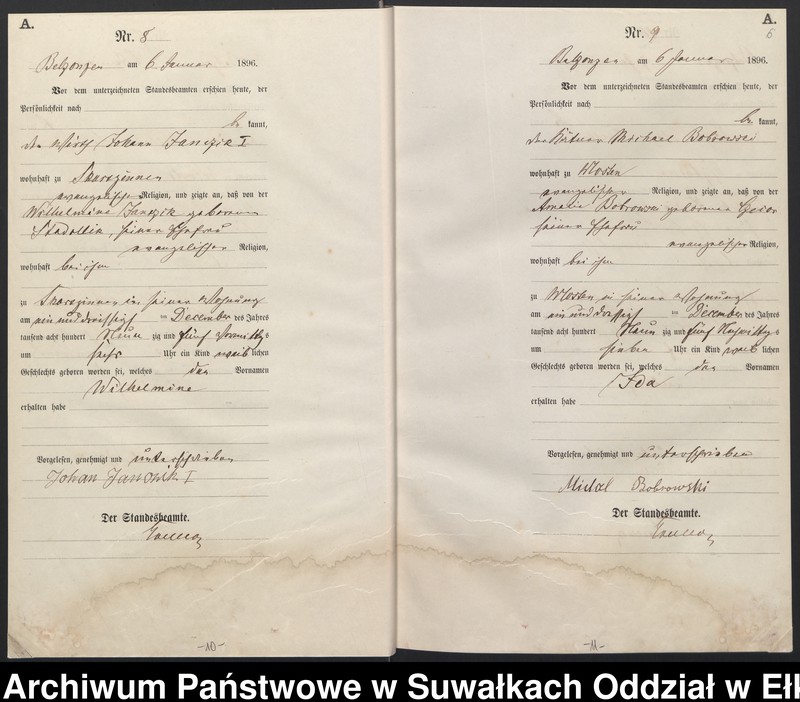 A.
Nr. 8
am 6 Januar 1896.
Vor dem unterzeichneten Standesbeamten erschien heute, der
Persönlichkeit nach
be kannt,
der Wirth Johann Janczik I
wohnhaft zu
evangelischer Religion, und zeigte an, daß von der
Wilhelmine Janczik geborenen
seiner Ehefrau
evangelischer Religion,
wohnhaft bei ihm
zu in seiner Wohnung
am ein und dreissigsten December des Jahres
tausend acht hundert Neun zig und fünf Vormittags
um sechs Uhr ein Kind weiblichen
Geschlechts geboren worden sei, welches den Vornamen
Wilhelmine
erhalten habe
Vorgelesen, genehmigt und unterschrieben
Johan I
Der Standesbeamte.
-10-
A.
6
Nr. 9
am 6 Januar 1896.
Vor dem unterzeichneten Standesbeamten erschien heute, der
Persönlichkeit nach
be kannt,
der Michael Bobrowski
wohnhaft zu
evangelischer Religion, und zeigte an, daß von der
Amalie Bobrowski geborenen
seiner Ehefrau
evangelischer Religion,
wohnhaft bei ihm
zu in seiner Wohnung
am ein und dreissigsten December des Jahres
tausend acht hundert Neun zig und fünf Nachmittags
um sieben Uhr ein Kind weiblichen
Geschlechts geboren worden sei, welches den Vornamen
Ida
erhalten habe
Vorgelesen, genehmigt und unterschrieben
Michael Bobrowski
Der Standesbeamte.
-11-
Archiwum Państwowe w Suwałkach Oddział w Ełk